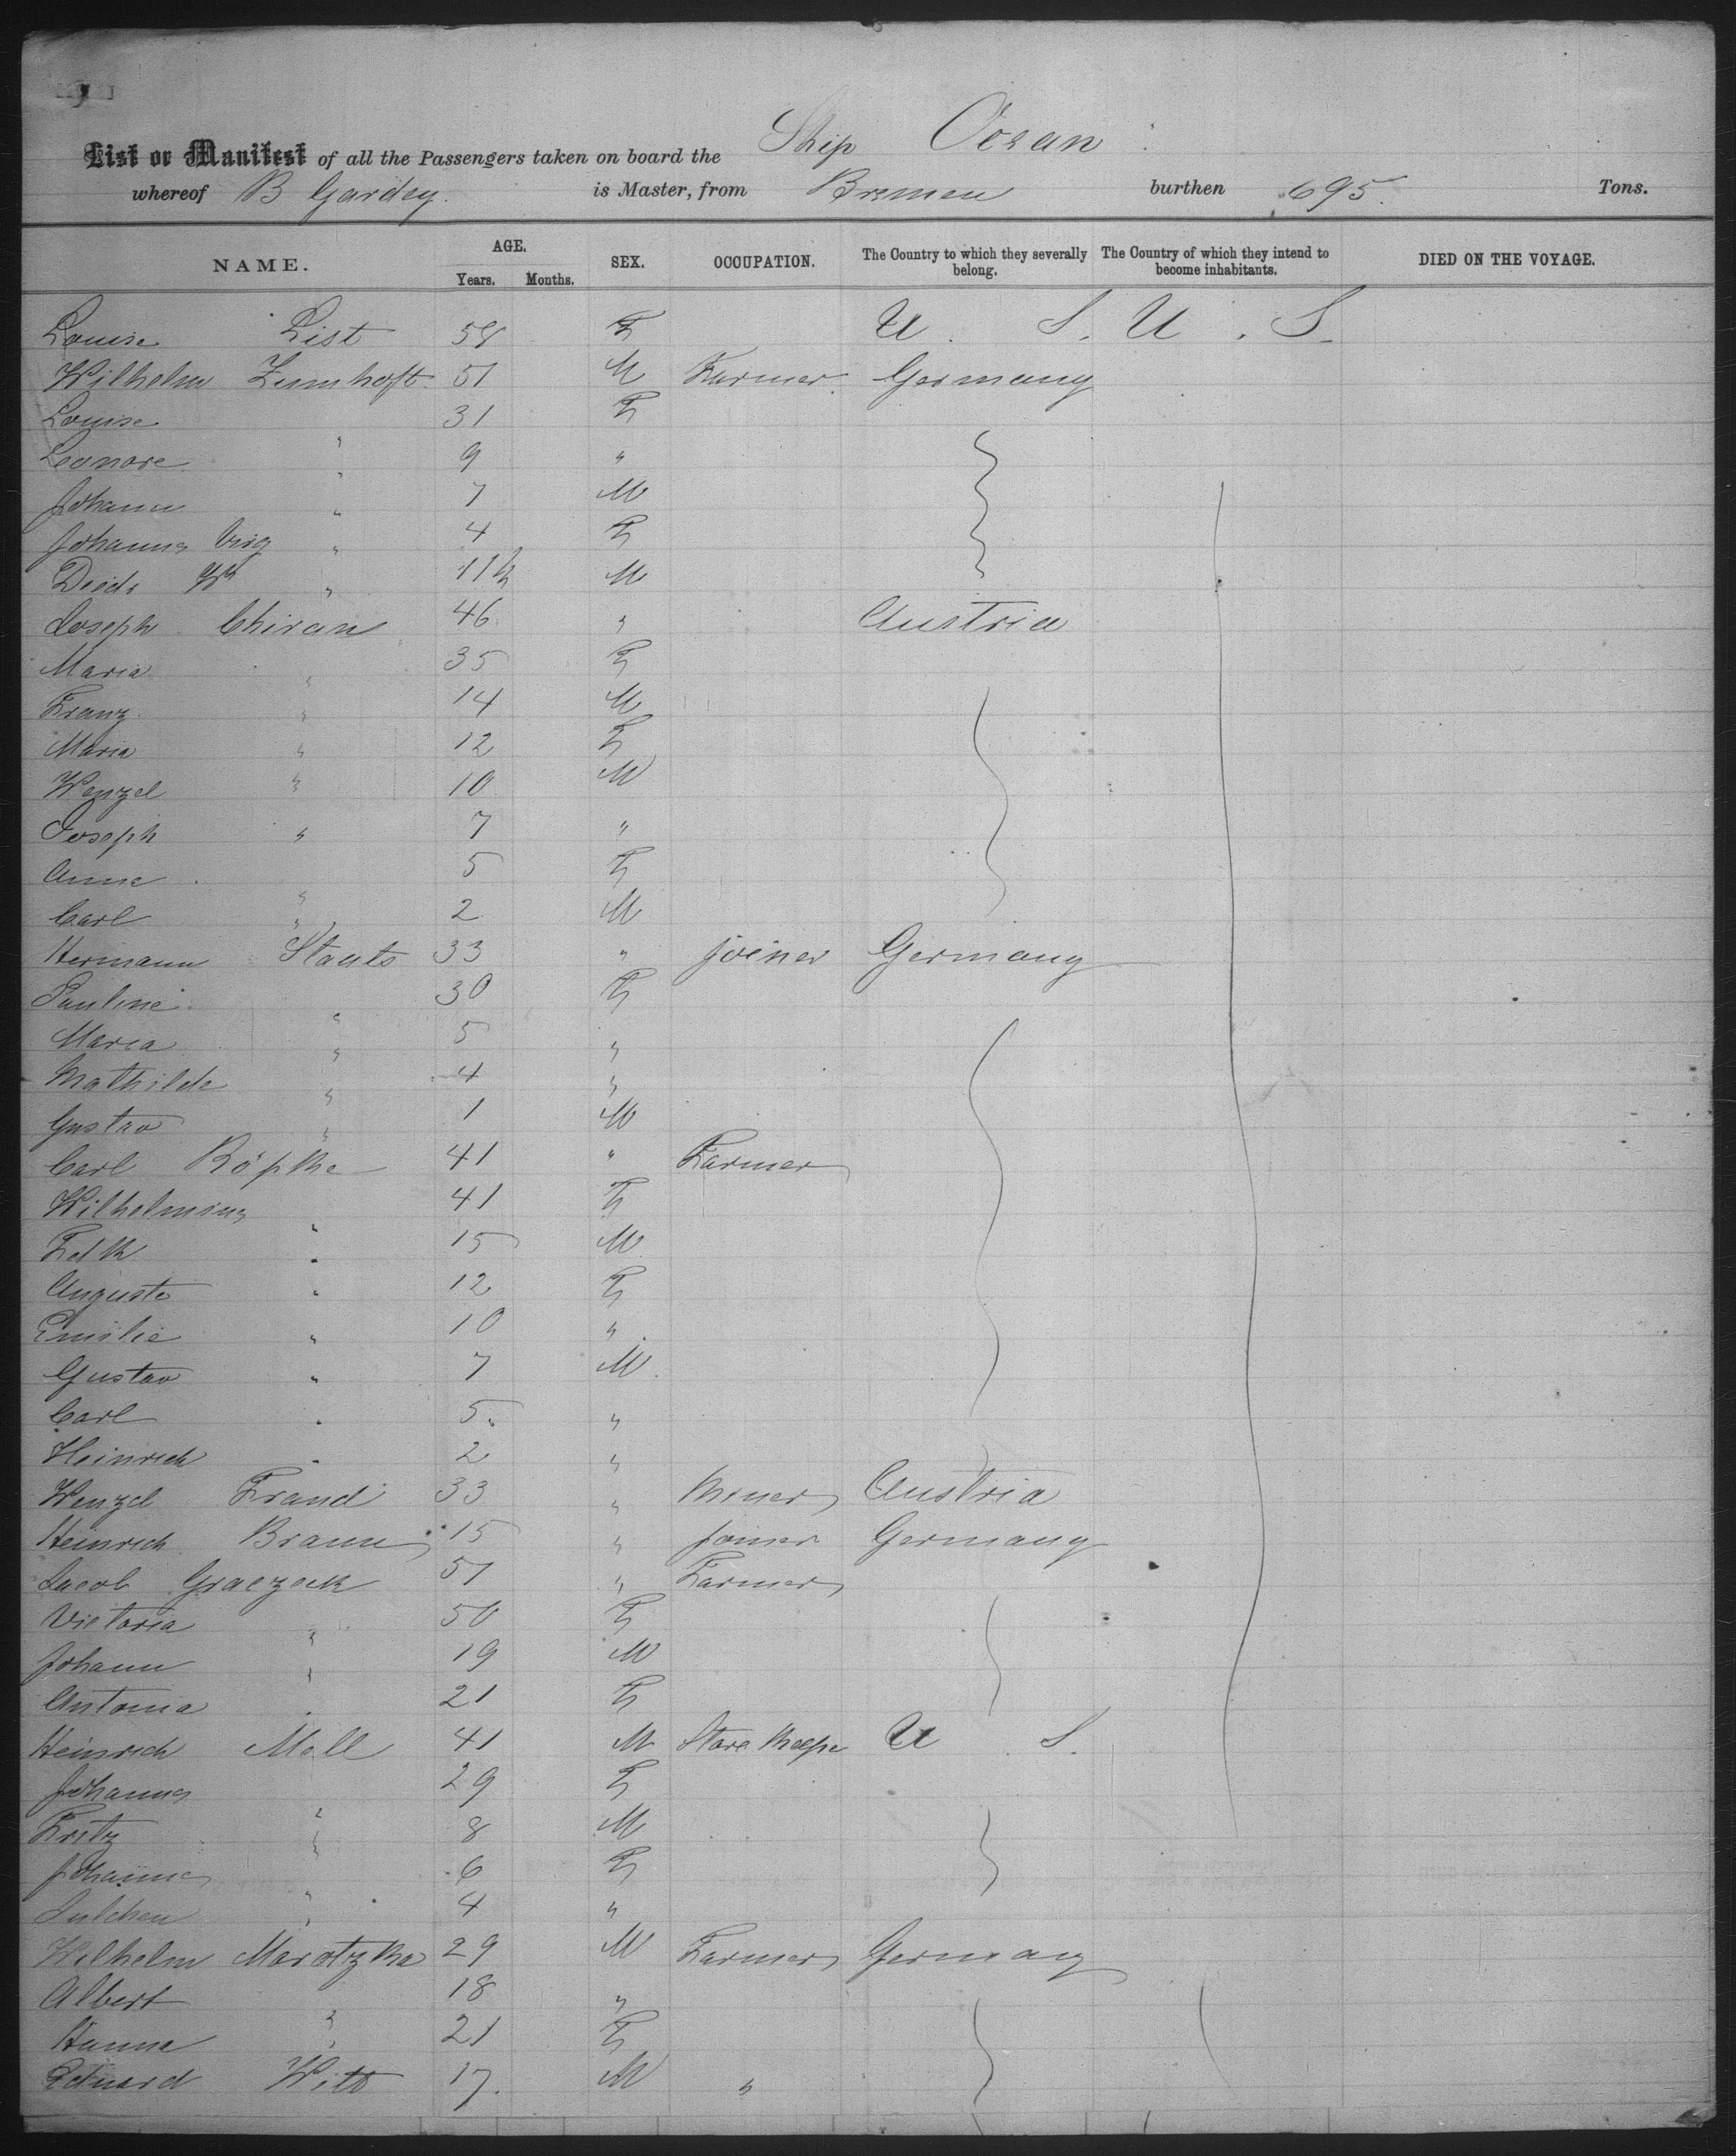 List or Manifest of all the Passengers taken on board the Ship Ocean
whereof B Gardey is Master, from Bremen burthen 695 Tons.
NAME. AGE. Years. Months. SEX. OCCUPATION. The Country to which they severally belong. The Country of which they intend to become inhabitants. DIED ON THE VOYAGE.
Louise List 58 F U. S. U. S.
Wilhelm Zumhoft 51 M Farmer Germany
Louise " 31 F
Leonore " 9 "
Johann " 7 M
Johanna " 4 F
Diedr Wh " 11 M
Joseph Chiran 46 " Austria
Maria " 35 F
Franz " 14 M
Maria " 12 F
Wenzel " 10 M
Joseph " 7 "
Anna " 5 F
Carl " 2 M
Hermann Staats 33 " joiner Germany
Pauline " 30 F
Maria " 5 "
Mathilde " 4 "
Gustav " 1 M
Carl Röpke 41 " Farmer
Wilhelmine " 41 F
Fdk " 15 M
Auguste " 12 F
Emilie " 10 "
Gustav " 7 M
Carl " 5 "
Heinrich " 2 "
Wenzel Frandi 33 " Miner Austria
Heinrich Braun 15 " joiner Germany
Jacob Graczeck 51 " Farmer
Victoria " 50 F
Johann " 19 M
Antonia " 21 F
Heinrich Moll 41 M Store Keepe U S.
Johanna " 29 F
Fritz " 8 M
Johanna " 6 F
Julchen " 4 "
Wilhelm Marotzka 29 M Farmer Germany
Albert " 18 "
Hanna " 21 F
Eduard Witt 17 M "